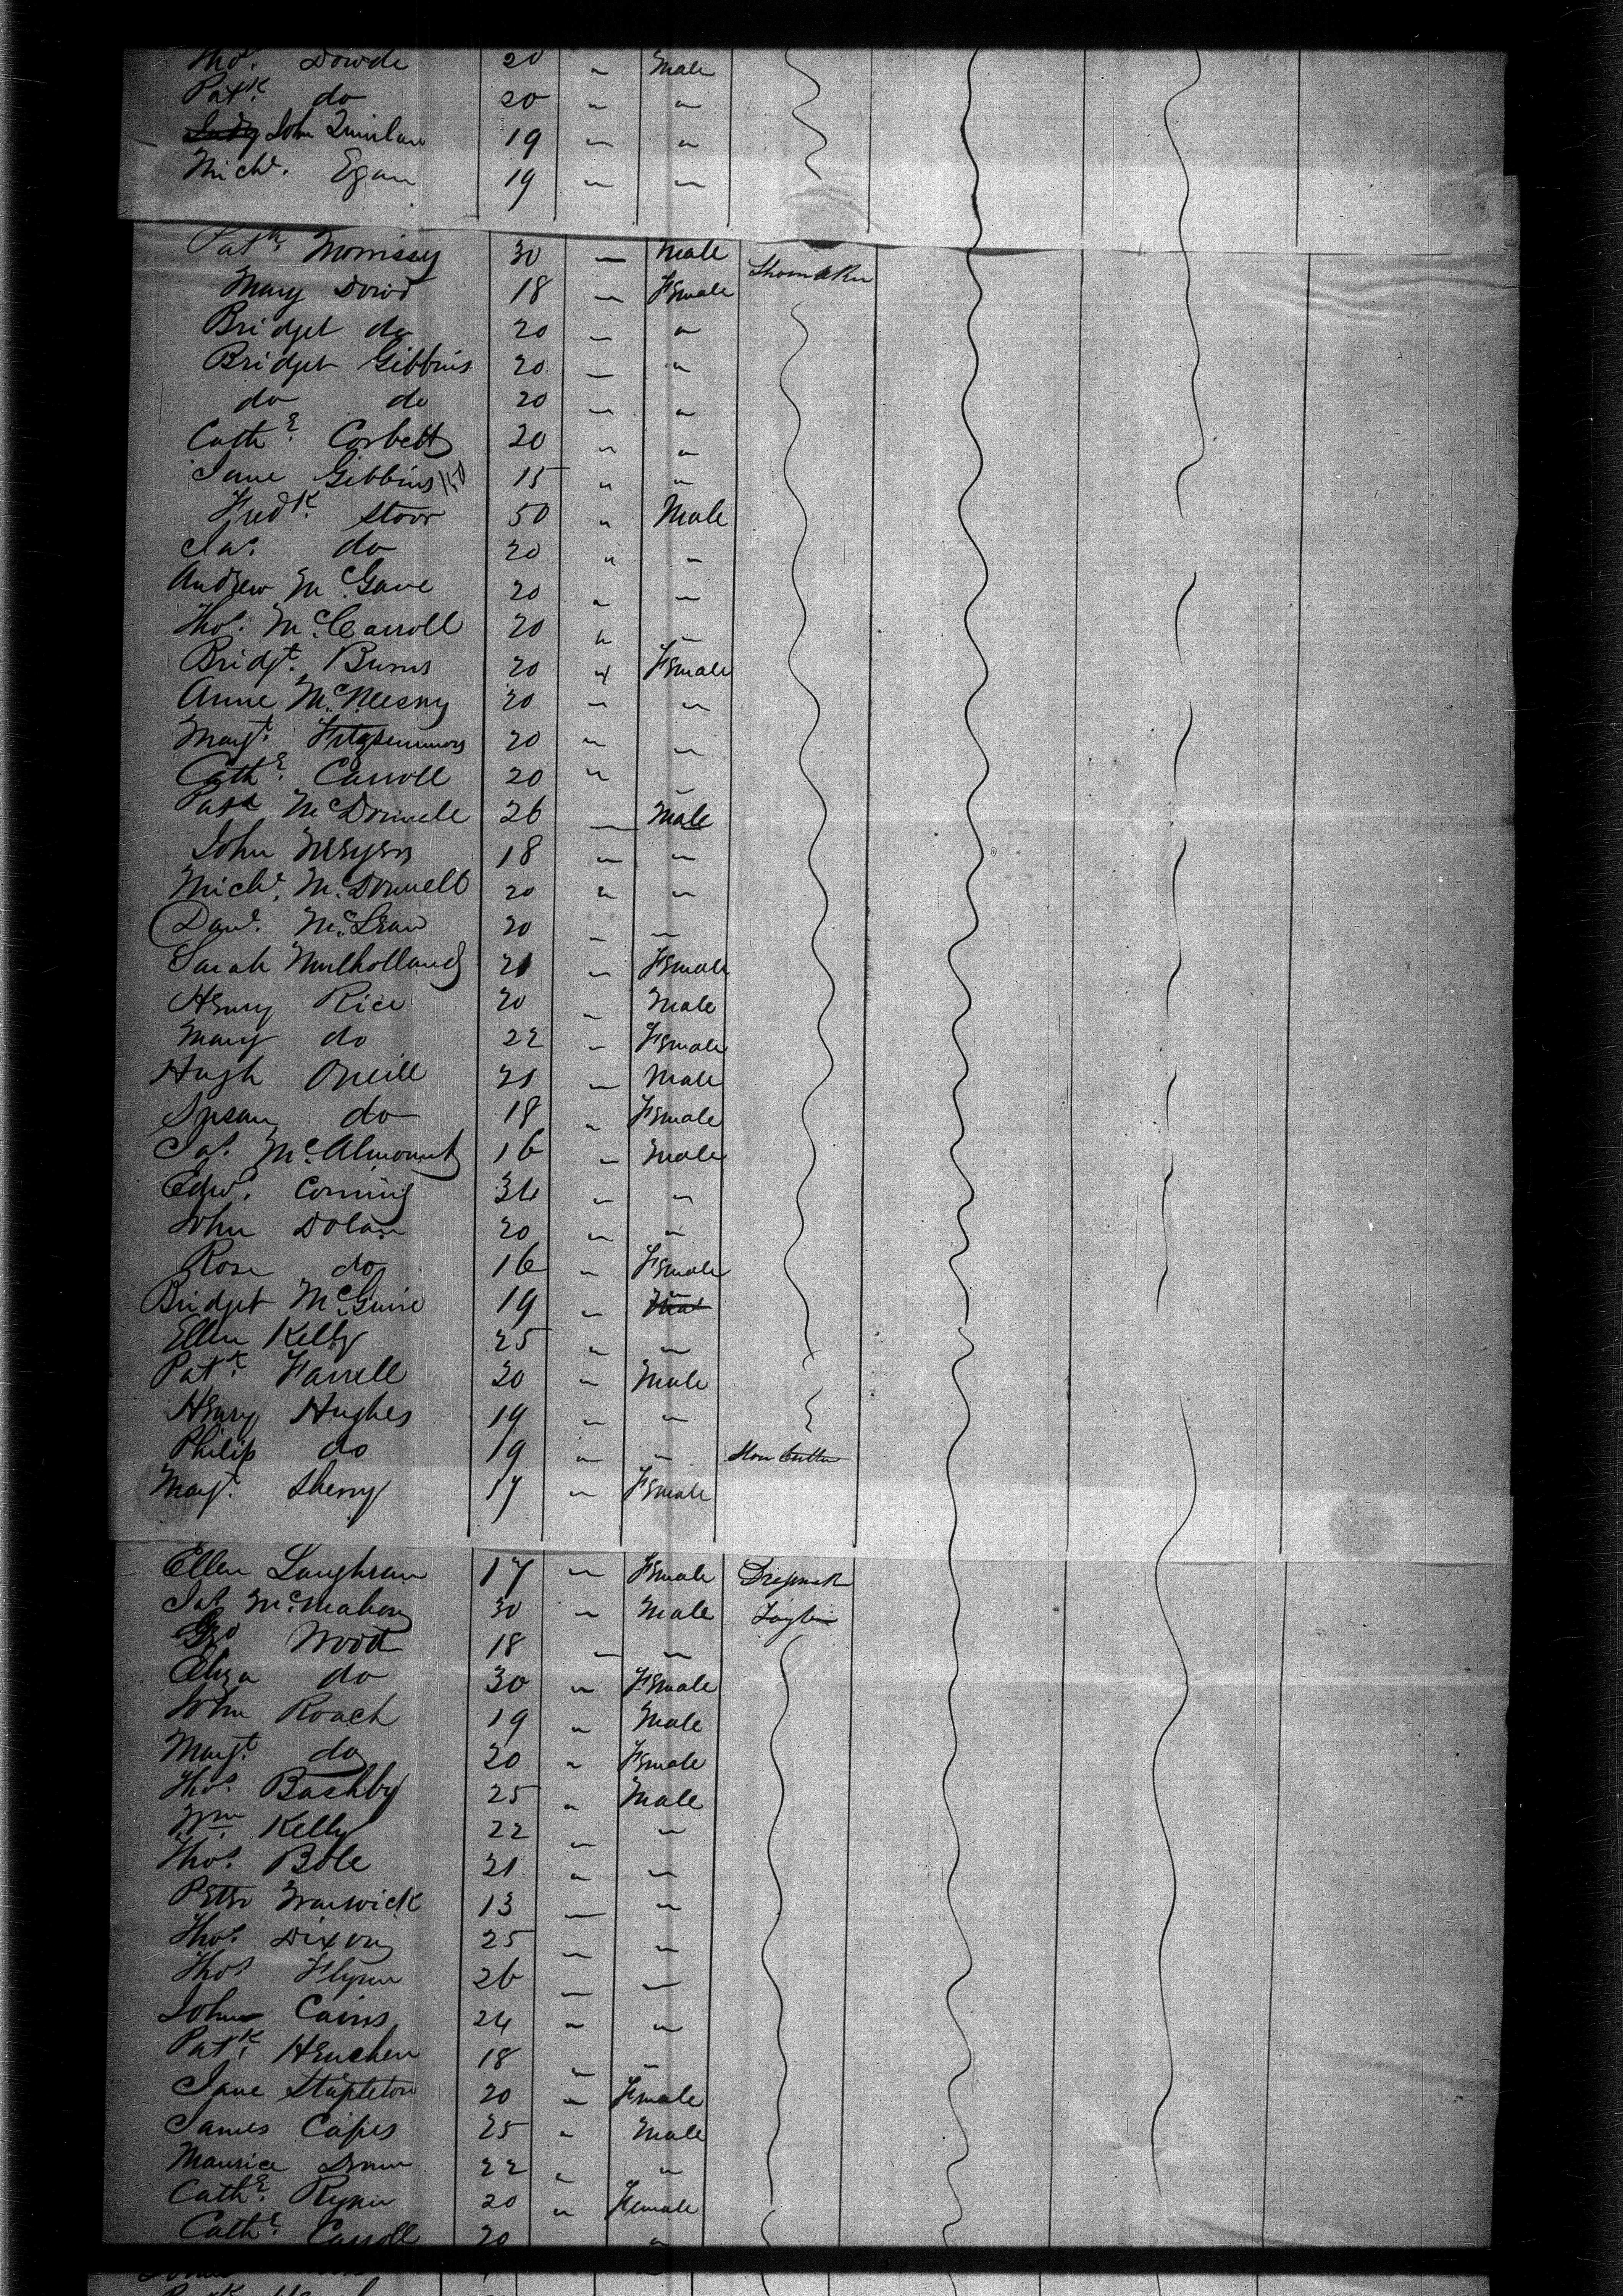 Thos. Dowde 20 " Male
Patk. do 20 " "
Judy John Quinlan 19 " "
Michl. Egan 19 " "
Patk. Morrissy 30 " Male Shoemaker
Mary Dowd 18 " Female
Bridget do 20 " "
Bridget Gibbins 20 " "
do do 20 " "
Cathe. Corbett 20 " "
Jane Gibbins 150 15 " "
Fredk. Stoor 50 " Male
Jas. do 20 " "
Andrew McGave 20 " "
Thos. McCarroll 20 " "
Bridgt. Burns 20 " Female
Anne McNeesny 20 " "
Margt. Fitzsimmons 20 " "
Cathe. Carroll 20 " "
Patk McDonnell 26 " Male
John Meyers 18 " "
Michl. McDonnell 20 " "
Danl. McLean 20 " "
Sarah Mulholland 21 " Female
Henry Rice 20 " Male
Mary do 22 " Female
Hugh Oneill 21 " Male
Susan do 18 " Female
Jas. McAlmount 16 " Male
Edwd. Corning 34 " "
John Dolan 20 " "
Rose do 16 " Female
Bridget McGuire 19 " "
Ellen Kelly 25 " "
Patk. Farrell 20 " Male
Henry Hughes 19 " "
Philip do 19 " " Stone Cutter
Margt. Sherry 17 " Female
Ellen Loughran 17 " Female Dressmak
Jas McMahon 30 " Male Taylor
Geo Wood 18 " "
Eliza do 30 " Female
John Roach 19 " Male
Margt. do 20 " Female
Thos. Bashby 25 " Male
Wm. Kelly 22 " "
Thos. Bole 21 " "
Peter Warwick 13 " "
Thos. Dixon 25 " "
Thos Flynn 26 " "
John Cairns 24 " "
Patk. Henchen 18 " "
Jane Stapleton 20 " Female
James Capes 25 " Male
Maurice 22 " "
Cathe. Rynn 20 " Female
Cathe. Carroll 20 "